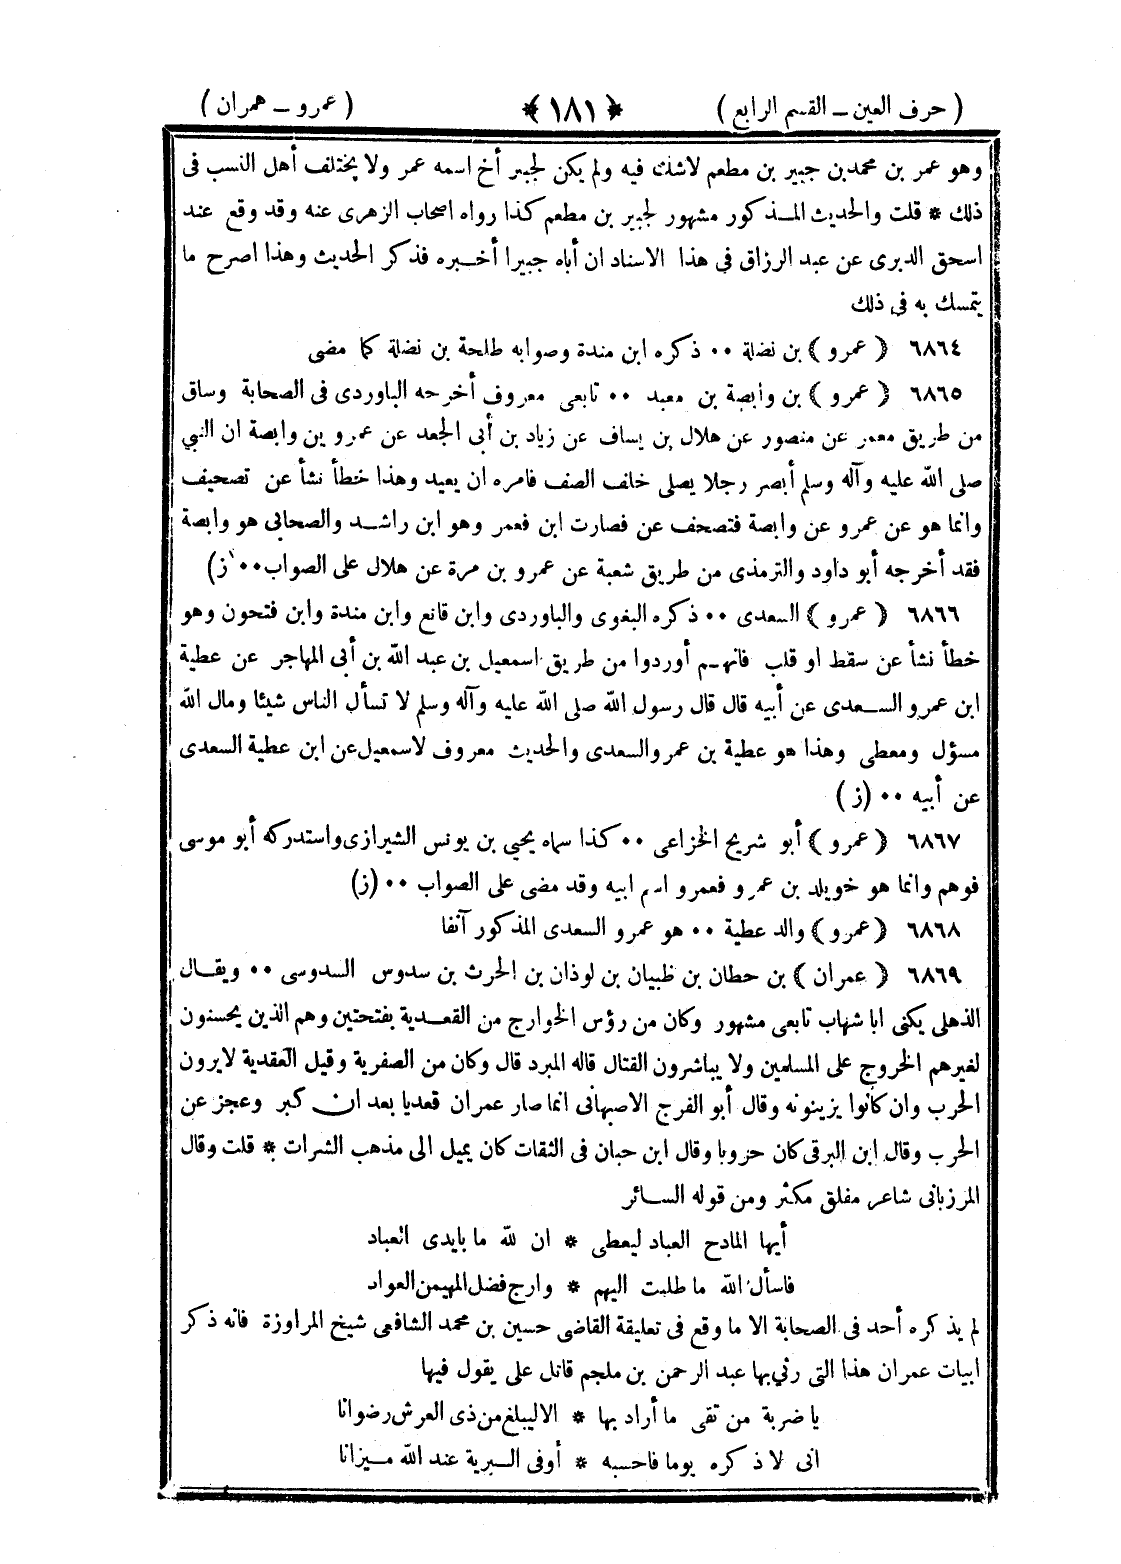 ( حرف العين ــ القسم الرابع ) ﴿ ١٨١ ﴾ ( عمرو ــ همران )
وهو عمر بن محمد بن جبير بن مطعم لاشك فيه ولم يكن لجبير أخ اسمه عمر ولا يختلف أهل النسب فى
ذلك * قلت والحديث المذكور مشهور لجبير بن مطعم كذا رواه اصحاب الزهرى عنه وقد وقع عند
اسحق الدبرى عن عبد الرزاق فى هذا الاسناد ان أباه جبيرا أخبره فذكر الحديث وهذا اصرح ما
يتمسك به فى ذلك
٦٨٦٤ ﴿ عمرو ﴾ بن نضلة ٠٠ ذكره ابن مندة وصوابه طلحة بن نضلة كما مضى
٦٨٦٥ ﴿ عمرو ﴾ بن وابصة بن معبد ٠٠ تابعى معروف أخرجه الباوردى فى الصحابة وساق
من طريق معمر عن منصور عن هلال بن يساف عن زياد بن أبى الجعد عن عمرو بن وابصة ان النبي
صلى الله عليه وآله وسلم أبصر رجلا يصلى خلف الصف فامره ان يعيد وهذا خطأ نشأ عن تصحيف
وانما هو عن عمرو عن وابصة فتصحف عن فصارت ابن فمعمر وهو ابن راشد والصحابى هو وابصة
فقد أخرجه أبو داود والترمذى من طريق شعبة عن عمرو بن مرة عن هلال على الصواب ٠٠ (ز)
٦٨٦٦ ﴿ عمرو ﴾ السعدى ٠٠ ذكره البغوى والباوردى وابن قانع وابن مندة وابن فتحون وهو
خطأ نشأ عن سقط او قلب فانهم أوردوا من طريق اسمعيل بن عبد الله بن أبى المهاجر عن عطية
ابن عمرو السعدى عن أبيه قال قال رسول الله صلى الله عليه وآله وسلم لا تسأل الناس شيئا ومال الله
مسؤل ومعطى وهذا هو عطية بن عمرو السعدى والحديث معروف لاسمعيل عن ابن عطية السعدى
عن أبيه ٠٠ (ز)
٦٨٦٧ ﴿ عمرو ﴾ أبو شريح الخزاعى ٠٠ كذا سماه يحيى بن يونس الشيرازى واستدركه أبو موسى
فوهم وانما هو خويلد بن عمرو فعمرو اسم ابيه وقد مضى على الصواب ٠٠ (ز)
٦٨٦٨ ﴿ عمرو ﴾ والد عطية ٠٠ هو عمرو السعدى المذكور آنفا
٦٨٦٩ ﴿ عمران ﴾ بن حطان بن ظبيان بن لوذان بن الحرث بن سدوس السدوسى ٠٠ ويقال
الذهلى يكنى ابا شهاب تابعى مشهور وكان من رؤس الخوارج من القعدية بفتحتين وهم الذين يحسنون
لغيرهم الخروج على المسلمين ولا يباشرون القتال قاله المبرد قال وكان من الصفرية وقيل القعدية لا يرون
الحرب وان كانوا يزينونه وقال أبو الفرج الاصبهانى انما صار عمران قعديا بعد ان كبر وعجز عن
الحرب وقال ابن البرقى كان حزوبا وقال ابن حبان فى الثقات كان يميل الى مذهب الشرات * قلت وقال
المرزبانى شاعر مفلق مكثر ومن قوله السائر
أيها المادح العباد ليعطى * ان لله ما بايدى العباد
فاسأل الله ما طلبت اليهم * وارج فضل المهيمن العواد
لم يذكره أحد فى الصحابة الا ما وقع فى تعليقة القاضى حسين بن محمد الشافعى شيخ المراوزة فانه ذكر
ابيات عمران هذا التى رثى بها عبد الرحمن بن ملجم قاتل على يقول فيها
يا ضربة من تقى ما أراد بها * الا ليبلغ من ذى العرش رضوانا
انى لا ذكره يوما فاحسبه * أوفى البرية عند الله ميزانا